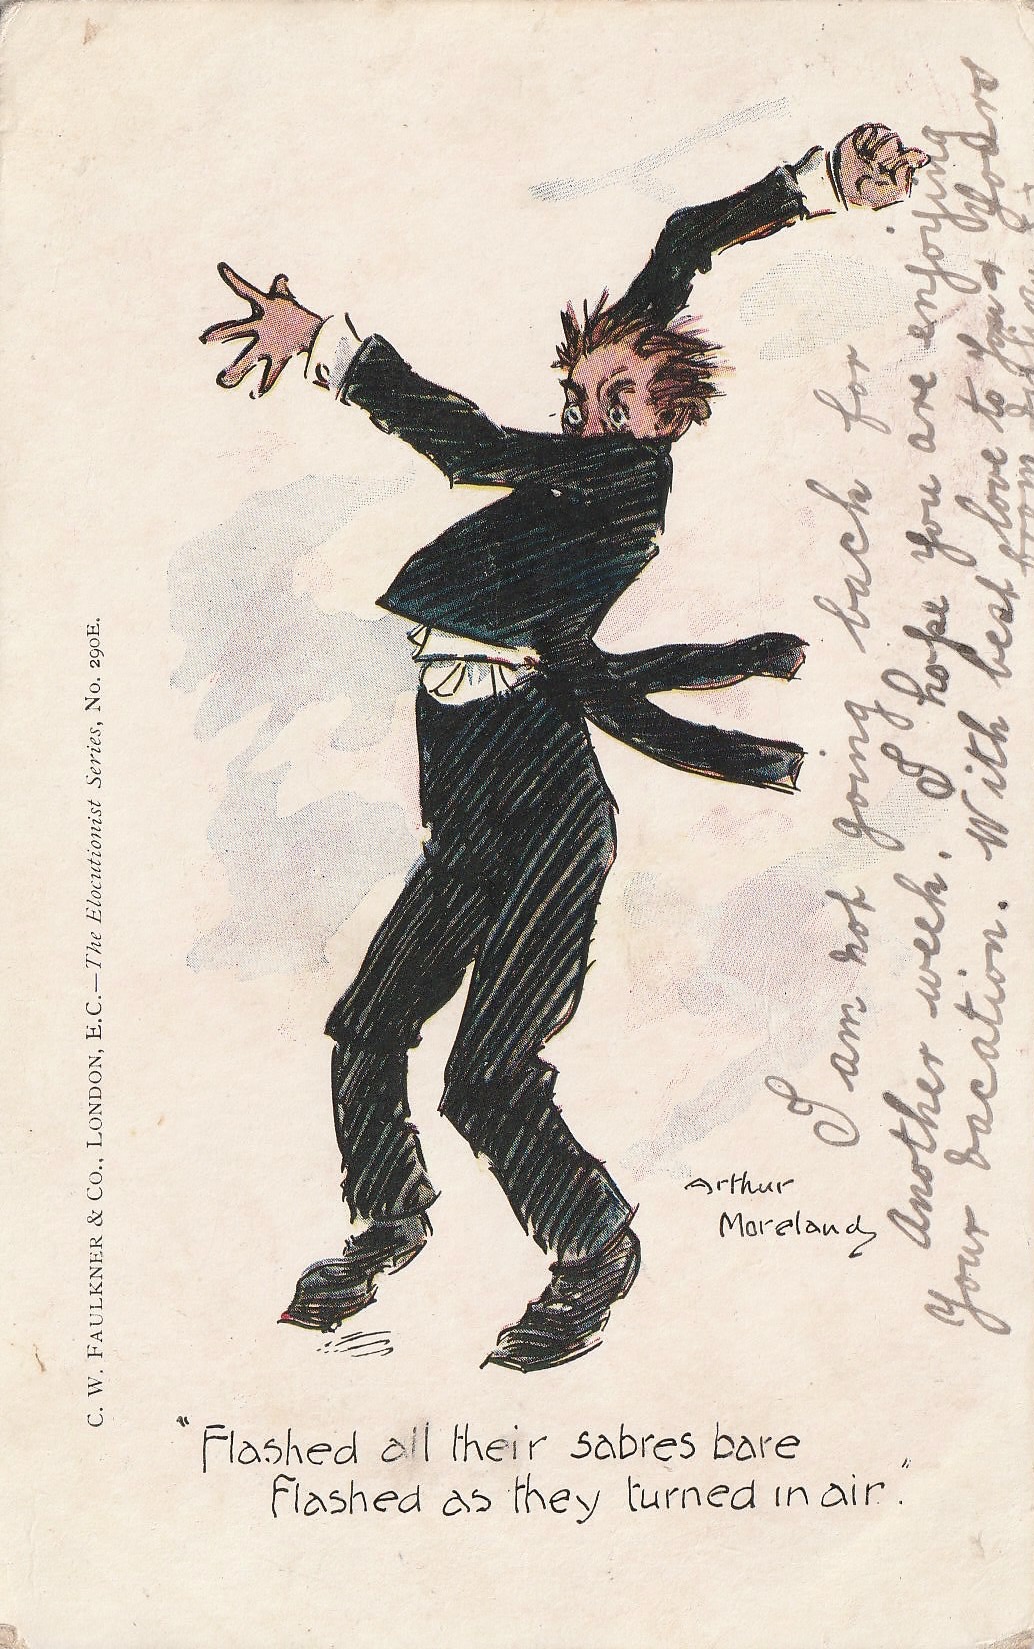 C. W. FAULKNER & Co., LONDON, E.C.—The Elocutionist Series, No. 290E.
Arthur
Moreland
"Flashed all their sabres bare
Flashed as they turned in air."
I am not going back for
Another week. I hope you are enjoying
Your vacation. With best love to You a Yours
from